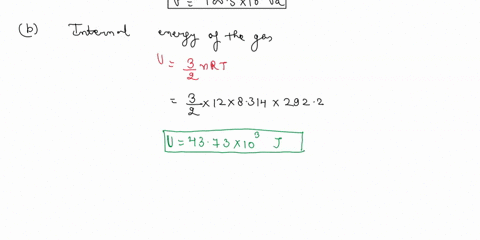 (b) Internal energy of the gas
U = 3/2 nRT
= 3/2 × 12 × 8.314 × 292.2
U = 43.73 × 10³ J